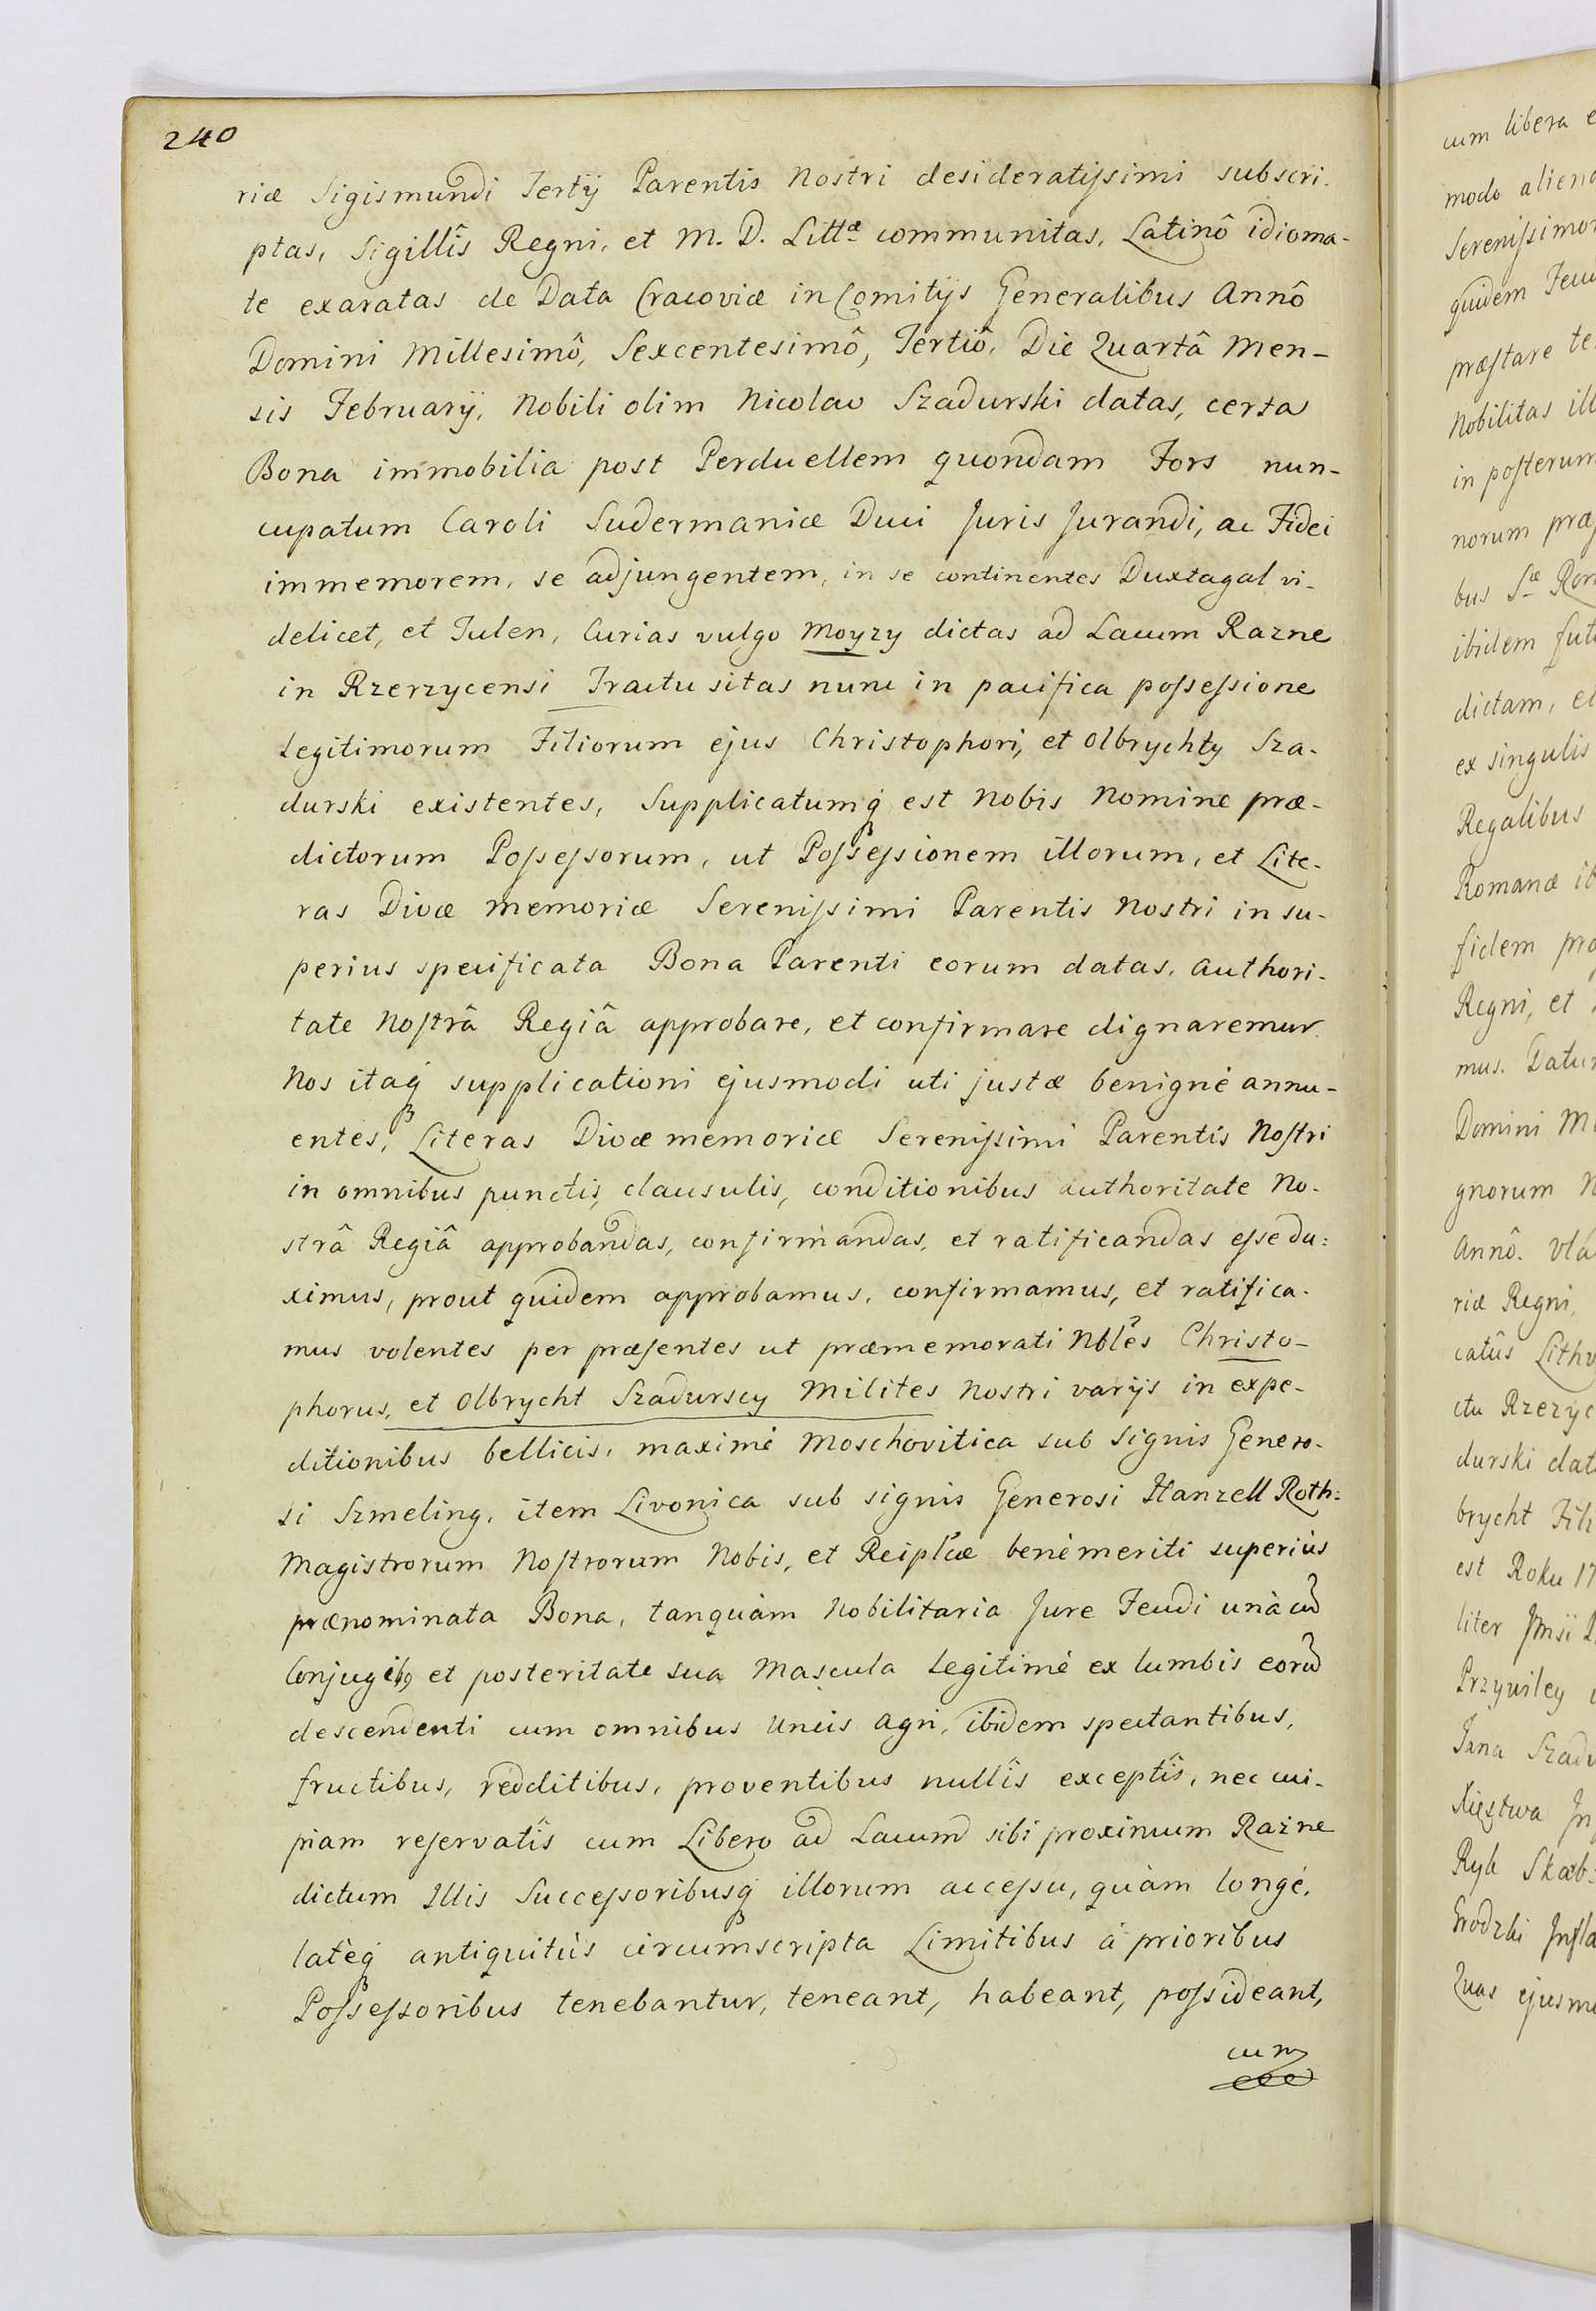 240
riæ Sigismundi Tertÿ Parentis Nostri desideratissimi subscri-
ptas, Sigillîs Regni, et M. D. Littæ communitas, Latinô idioma-
te exaratas de Data Cracoviæ in Comitÿs Generalibus Annô
Domini Millesimô, Sexcentesimô, Tertiô, Die Quartâ Men-
sis Februarÿ, Nobili olim Nicolao Szadurski datas, certa
Bona immobilia post Perduellem quondam Fors nun-
cupatum Caroli Sudermaniæ Duci Juris Jurandi, ac Fidei
immemorem, se adjungentem, in se continentes Duxtagal vi-
delicet, et Julen, Curias vulgo Moyzy dictas ad Lacum Razne
in Rzerzycensi Tractu sitas nunc in pacifica possessione
Legitimorum Filiorum ejus Christophori, et Olbrychty Sza-
durski existentes, Supplicatumq́ est Nobis Nomine præ-
dictorum Possessorum, ut Possessionem illorum, et Lite-
ras Divæ memoriæ Serenissimi Parentis Nostri in su-
perius specificata Bona Parenti eorum datas, Authori-
tate Nostrâ Regiâ approbare, et confirmare dignaremur
Nos itaq́ supplicationi ejusmodi uti justæ benignè annu-
entes, Literas Divæ memoriæ Serenissimi Parentis Nostri
in omnibus punctis, clausulis, conditionibus authoritate No-
strâ Regiâ approbandas, confirmandas, et ratificandas esse du:
ximus, prout quidem approbamus, confirmamus, et ratifica-
mus volentes per præsentes ut præmemorati Nbles Christo-
phorus, et Olbrycht Szadurscy Milites Nostri varÿs in expe-
ditionibus bellicis, maximè Moschovitica sub signis Genero-
si Szmeling, item Livonica sub signis Generosi Hanzell Roth:
Magistrorum Nostrorum Nobis, et Reiplcæ benèmeriti superiùs
prænominata Bona, tanquàm Nobilitaria Jure Feudi unà cu͠
Conjugibꝰ et posteritate sua Mascula Legitimè ex lumbis eoru͠
descendenti cum omnibus Uncis agri, ibidem spectantibus,
fructibus, redditibus, proventibus nullîs exceptîs, nec cui-
piam reservatîs cum Libero ad Lacum sibi proximum Razne
dictum Illis Successoribusq́ illorum accessu, quàm longè,
latèq́ antiquitùs circumscripta Limitibus à prioribus
Possessoribus tenebantur, teneant, habeant, possideant,
cum
cum libera e
modo aliena
Serenissimor
quidem Feud
præstare te
Nobilitas ill
in posterum
norum præ
bus Sæ Rom
ibidem futu
dictam, e
ex singulis
Regalibus
Romanæ ib
fidem pro
Regni, et
mus. Datum
Domini M
gnorum N
Annô. Vla
riæ Regni,
catûs Lithv
ctu Rzezyc
durski dat
brycht Fili
est Roku 17
liter
Przywiley
Jana Szadu
Xięztwa
Ryb Skab:
Grodzki Infla
Quas ejusmo